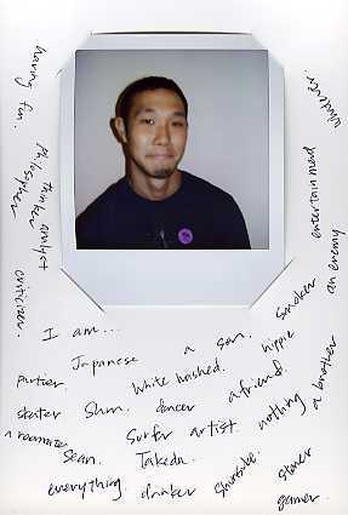 having fun.
thinker analyst
philospher
criticizer.
entertained
an enemy
smoker
I am...
Japanese
a son.
hippie
partier.
White washed.
a friend.
a brother
skater
Shun.
dancer
nothing
a roommate
Surfer
artist
Sean.
Takeda.
stoner
everything.
drinker
gamer.